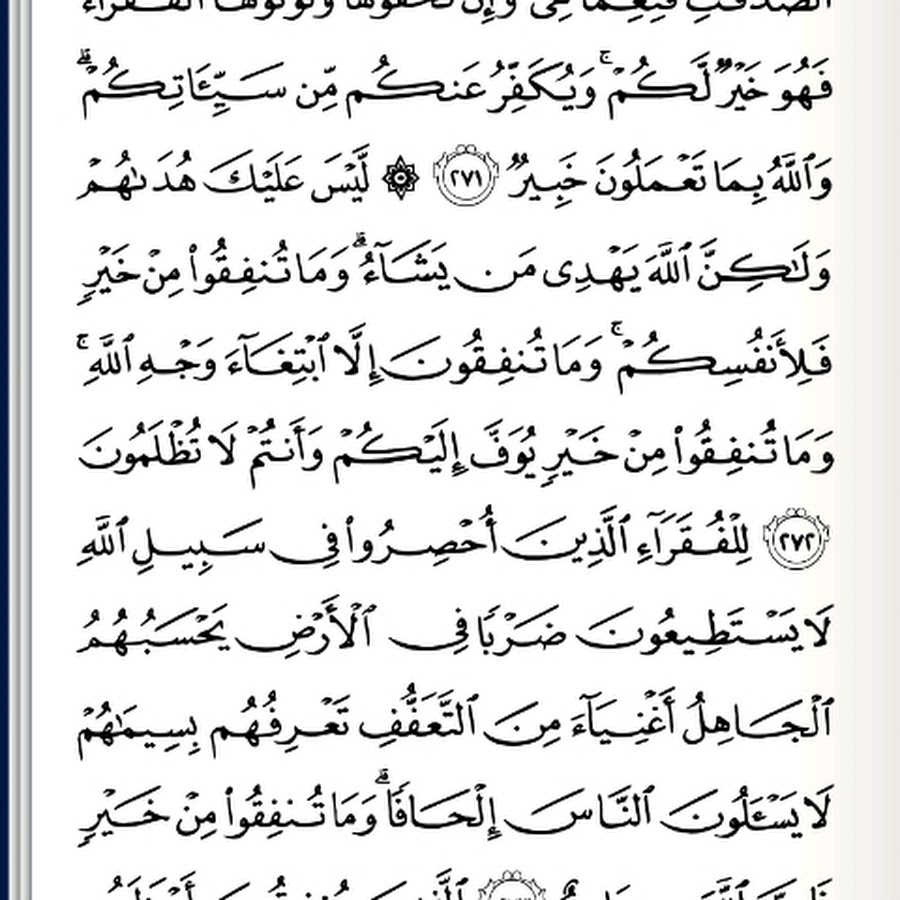 فَهُوَ خَيْرٌ لَّكُمْ ۚ وَيُكَفِّرُ عَنكُم مِّن سَيِّـَٔاتِكُمْ ۗ
وَٱللَّهُ بِمَا تَعْمَلُونَ خَبِيرٌ ٢٧١ ۞ لَّيْسَ عَلَيْكَ هُدَىٰهُمْ
وَلَـٰكِنَّ ٱللَّهَ يَهْدِى مَن يَشَآءُ ۗ وَمَا تُنفِقُوا۟ مِنْ خَيْرٍ
فَلِأَنفُسِكُمْ ۚ وَمَا تُنفِقُونَ إِلَّا ٱبْتِغَآءَ وَجْهِ ٱللَّهِ ۚ
وَمَا تُنفِقُوا۟ مِنْ خَيْرٍ يُوَفَّ إِلَيْكُمْ وَأَنتُمْ لَا تُظْلَمُونَ
٢٧٢ لِلْفُقَرَآءِ ٱلَّذِينَ أُحْصِرُوا۟ فِى سَبِيلِ ٱللَّهِ
لَا يَسْتَطِيعُونَ ضَرْبًا فِى ٱلْأَرْضِ يَحْسَبُهُمُ
ٱلْجَاهِلُ أَغْنِيَآءَ مِنَ ٱلتَّعَفُّفِ تَعْرِفُهُم بِسِيمَـٰهُمْ
لَا يَسْـَٔلُونَ ٱلنَّاسَ إِلْحَافًا ۗ وَمَا تُنفِقُوا۟ مِنْ خَيْرٍ